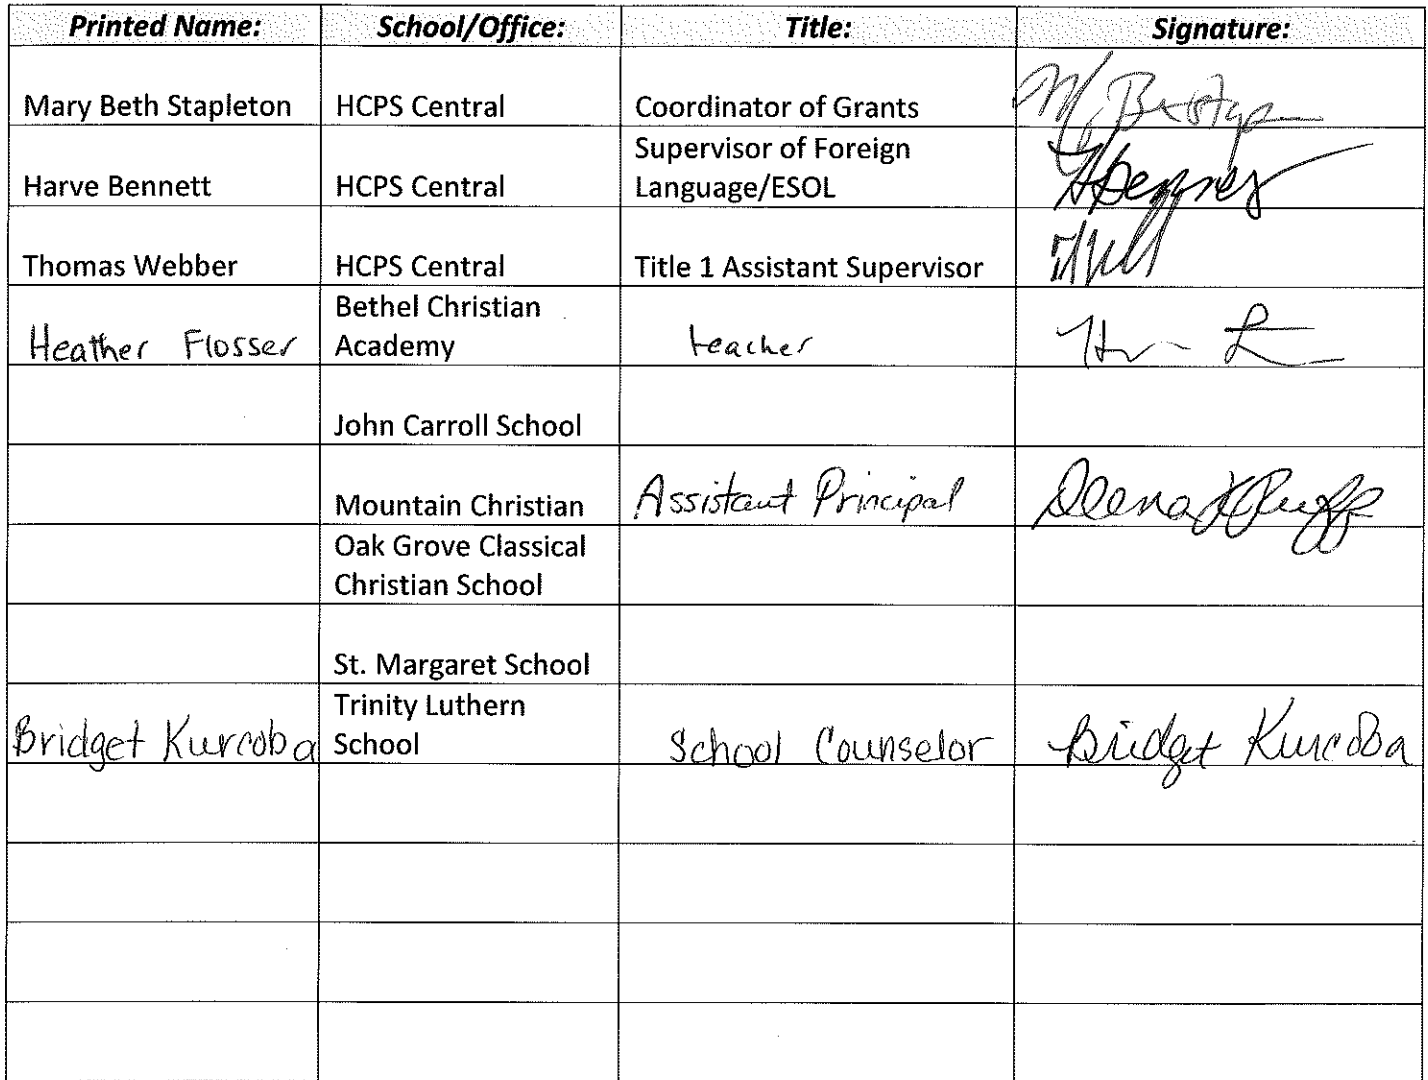 Printed Name: School/Office: Title: Signature:
Mary Beth Stapleton HCPS Central Coordinator of Grants
Harve Bennett HCPS Central Supervisor of Foreign
Language/ESOL
Thomas Webber HCPS Central Title 1 Assistant Supervisor
Heather Flosser Bethel Christian
Academy teacher
John Carroll School
Mountain Christian Assistant Principal
Oak Grove Classical
Christian School
St. Margaret School
Bridget Kurcoba Trinity Luthern
School School Counselor Bridget Kurcoba